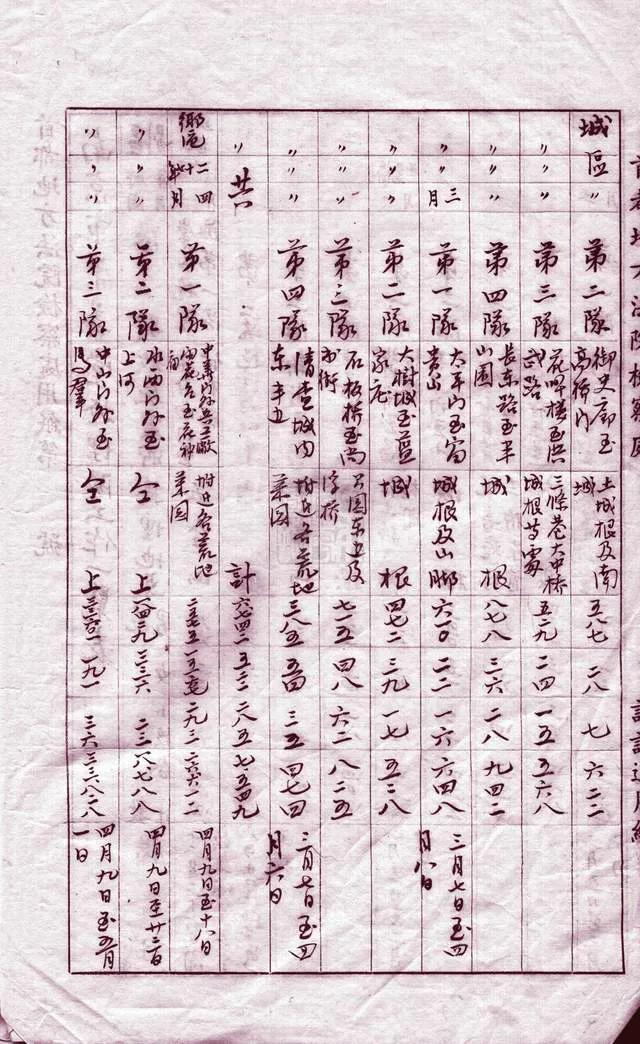 城區 〃 第二隊 御史廊至高橋門 土城根及南城 五八七 二八 七 六二二
〃 〃 〃 第三隊 花牌樓至洪武路 三條巷大中桥城根等處 五二九 二四 一五 五六八
〃 〃 〃 第四隊 長樂路至半山園 城根 八七八 三六 二八 九四二
〃 〃 三月 第一隊 太平门至富贵山 城根及山脚 六一〇 二二 一六 六四八 三月七日至四月八日
〃 〃 〃 第二隊 大樹城至藍家庄 城根 四七二 三九 一七 五二八
〃 〃 〃 第三隊 石板桥至尚书街 公園东及浮桥 七一五 四八 六二 八二五
〃 〃 〃 第四隊 清查城内东半 附近各荒地菜園 三八五 五四 三五 四七四 三月七日至四月六日
〃 共計 六七四二 五二二 二八五 七五四九
鄉區 二十七年四月 第一隊 中華门外兵工廠雨花台至花神廟 附近各荒地菜園 二九三 二六六一二 四月九日至十八日
〃 〃 〃 第二隊 水西门外至上河 仝上 一八四二九 三三六 二三 一八七八八 四月九日至廿三日
〃 〃 〃 第三隊 中山门外至馬羣 仝上 三三六〇一 一九一 三六 三三八二八 四月九日至五月一日